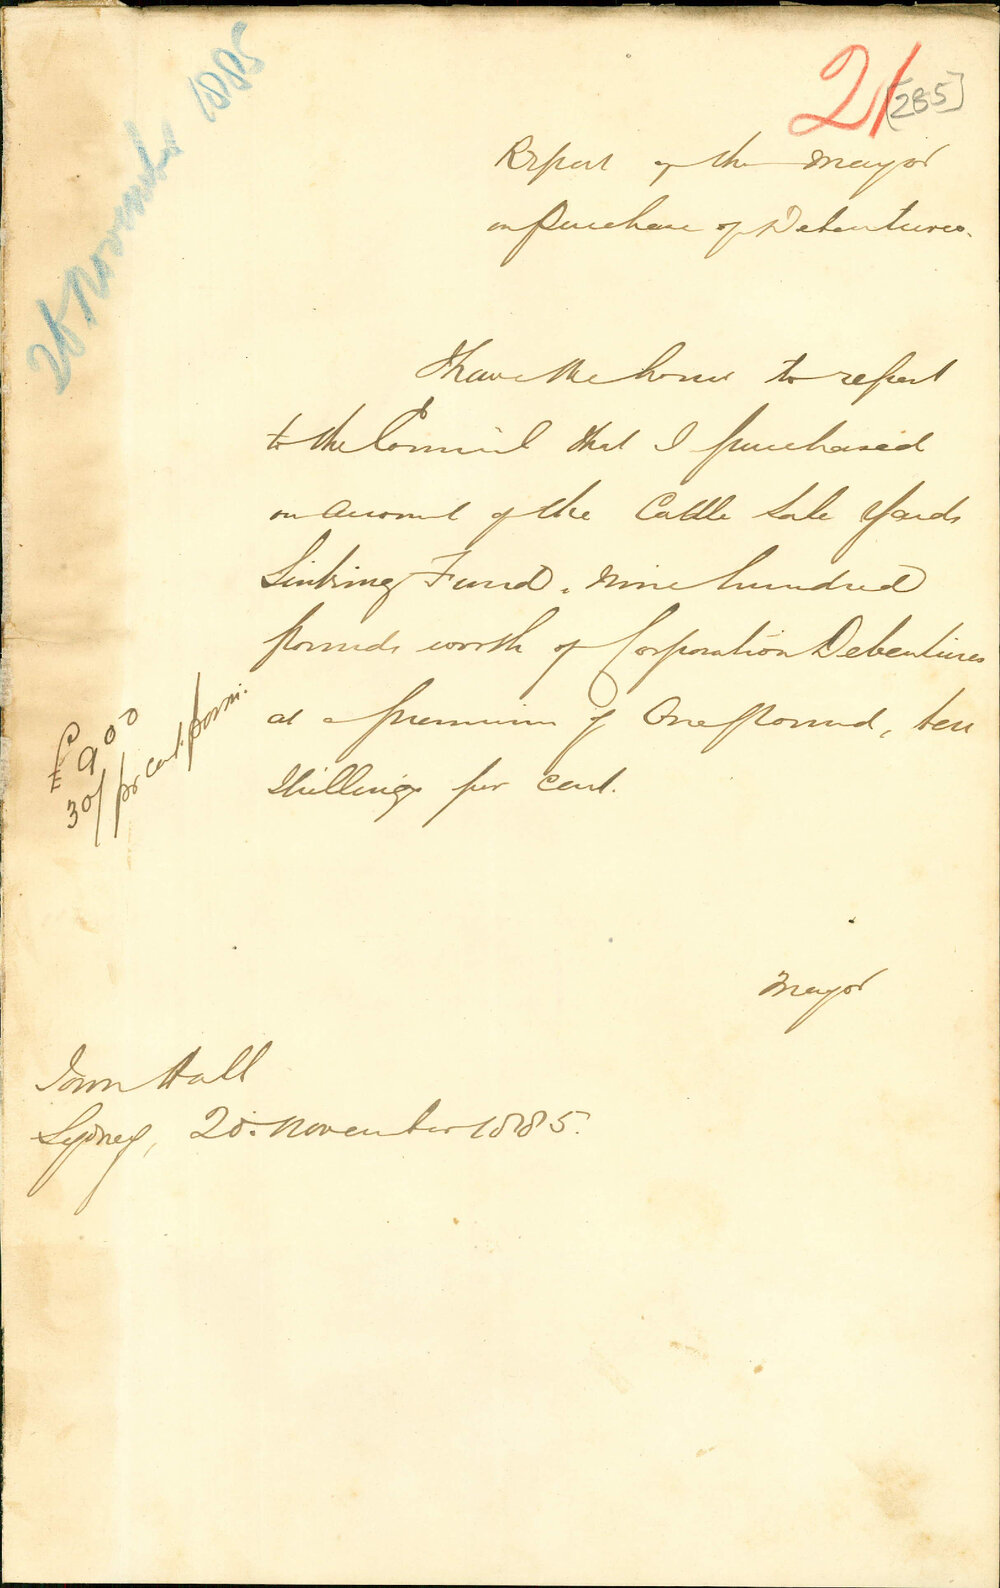 21
[285]
Report of the Mayor
on Purchase of Debentures.
26 November 1885
I have the honor to report
to the Council that I purchased
on account of the Cattle Sale Yards
Sinking Fund, nine hundred
pounds worth of Corporation Debentures
at a premium of One pound, ten
Shillings per cent.
£900
30/ pr cent. prem.
Mayor
Town Hall
Sydney, 20. November 1885.